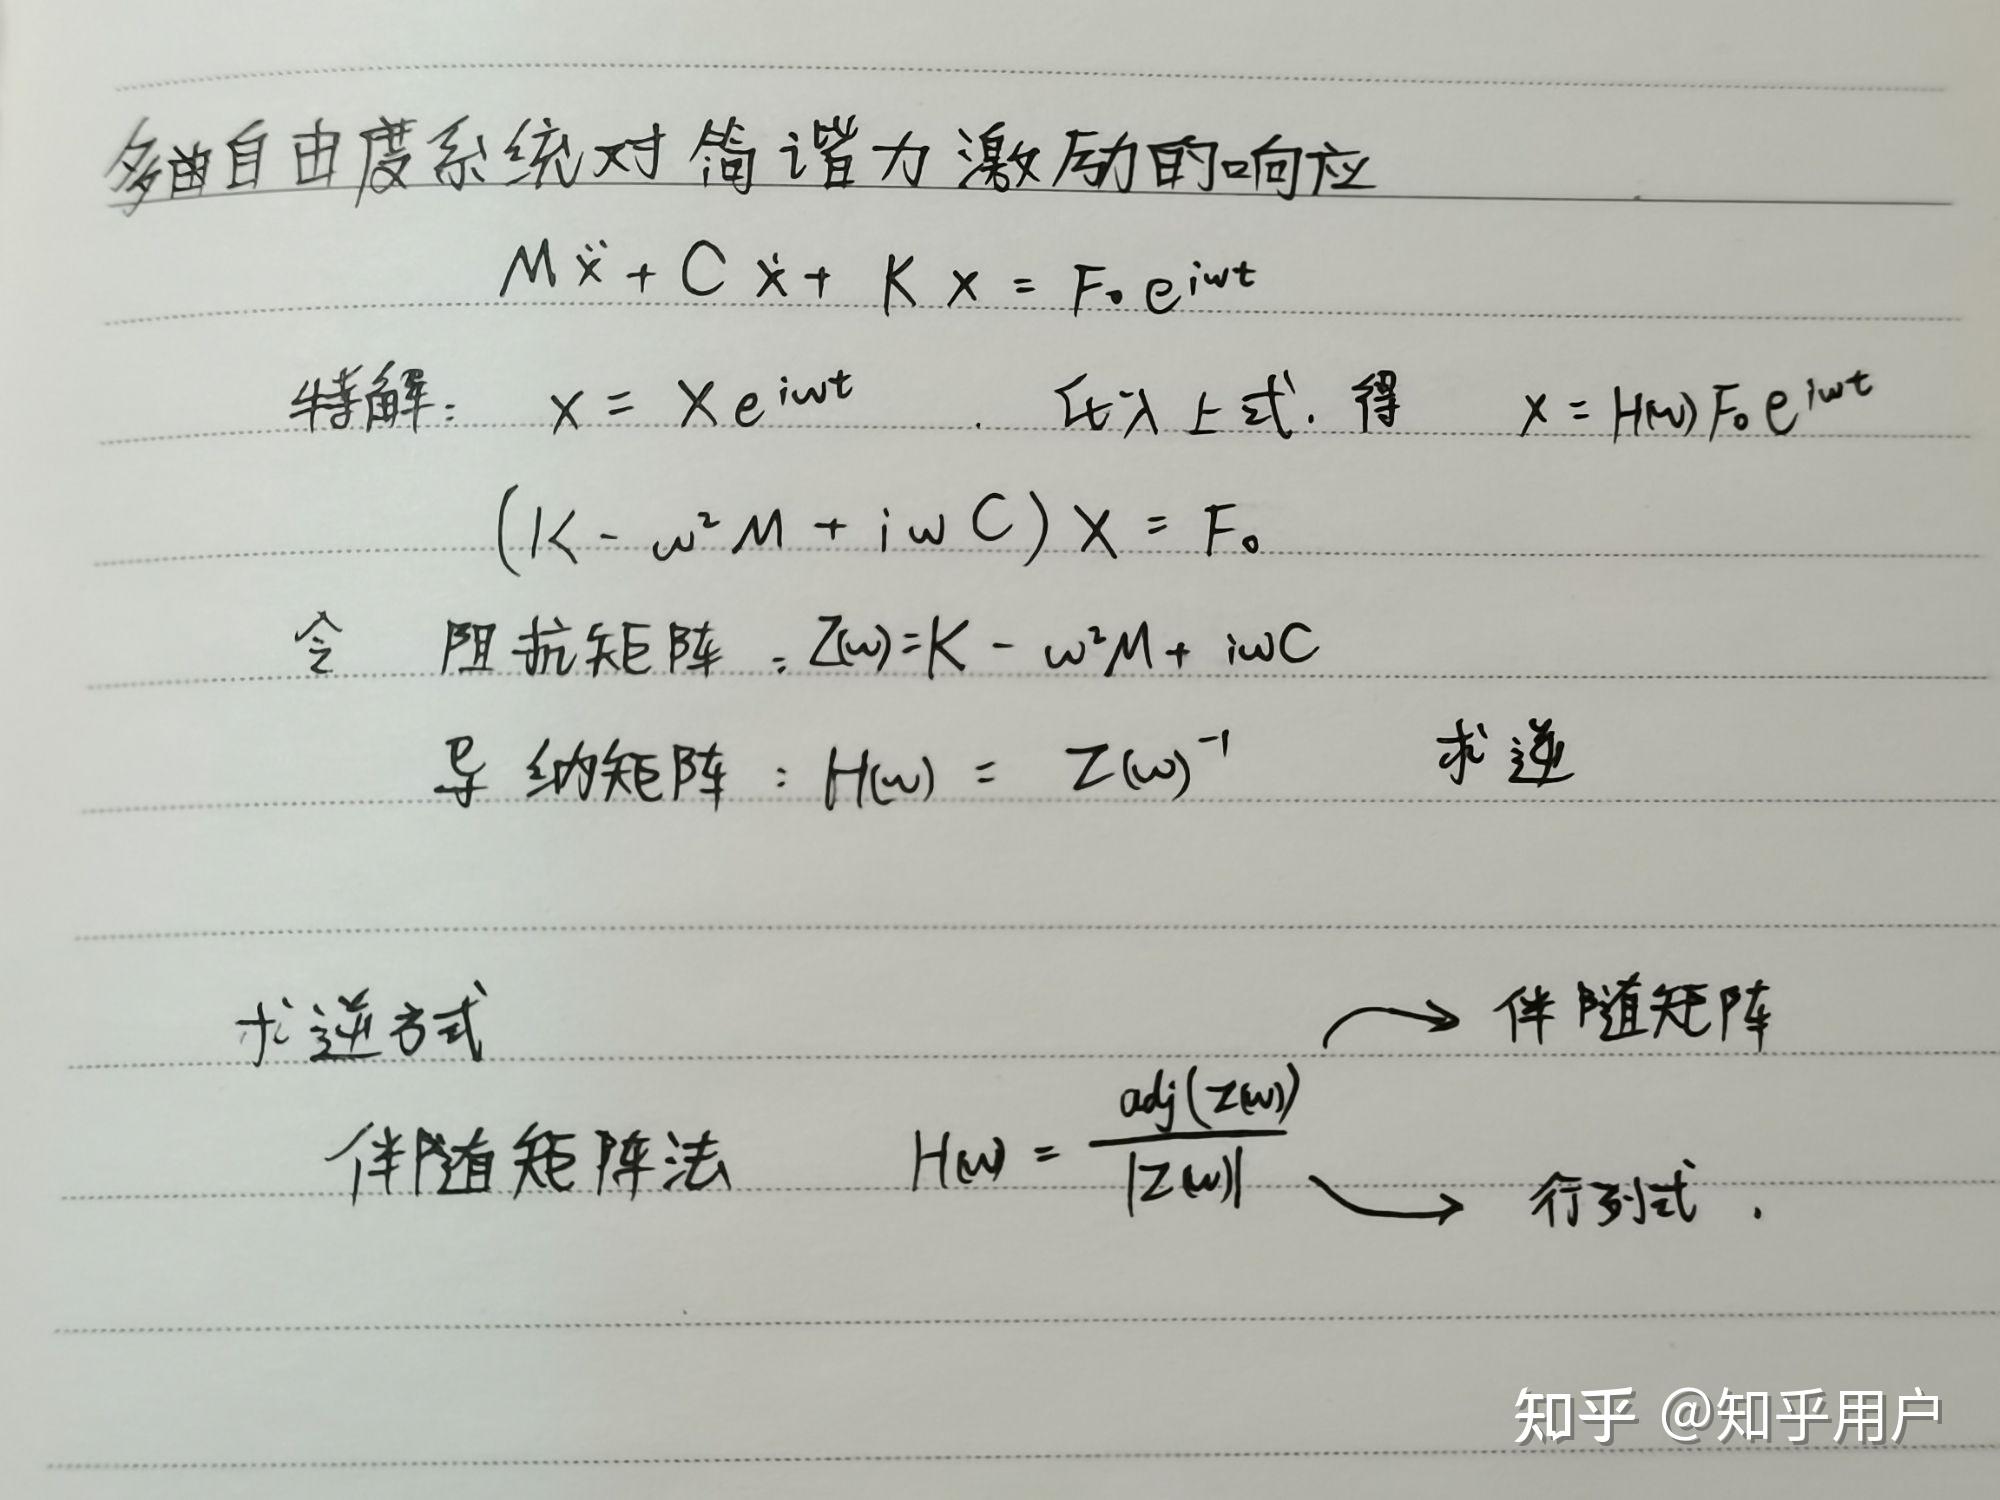 多曲自由度系统对简谐力激励的响应
Mẍ + Cẋ + Kx = F₀e^{iωt}
特解: x = Xe^{iωt} . 代入上式. 得 x = H(ω)F₀e^{iωt}
(K - ω²M + iωC)X = F₀
令 阻抗矩阵: Z(ω) = K - ω²M + iωC
导纳矩阵: H(ω) = Z(ω)⁻¹ 求逆
求逆方式 伴随矩阵
伴随矩阵法 H(ω) = adj(Z(ω)) / |Z(ω)|
行列式.
知乎 @知乎用户